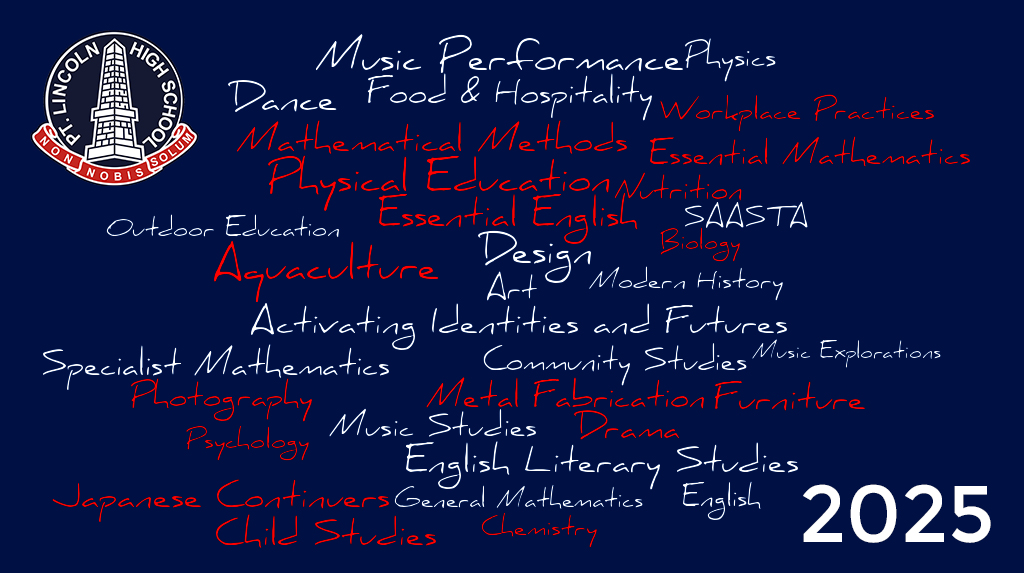 PT. LINCOLN HIGH SCHOOL
NON NOBIS SOLUM
Music Performance Physics
Dance Food & Hospitality Workplace Practices
Mathematical Methods Essential Mathematics
Physical Education Nutrition
Essential English SAASTA
Outdoor Education Biology
Aquaculture Design
Art Modern History
Activating Identities and Futures
Specialist Mathematics Community Studies Music Explorations
Photography Metal Fabrication Furniture
Psychology Music Studies Drama
English Literary Studies
Japanese Continuers General Mathematics English
Child Studies Chemistry
2025